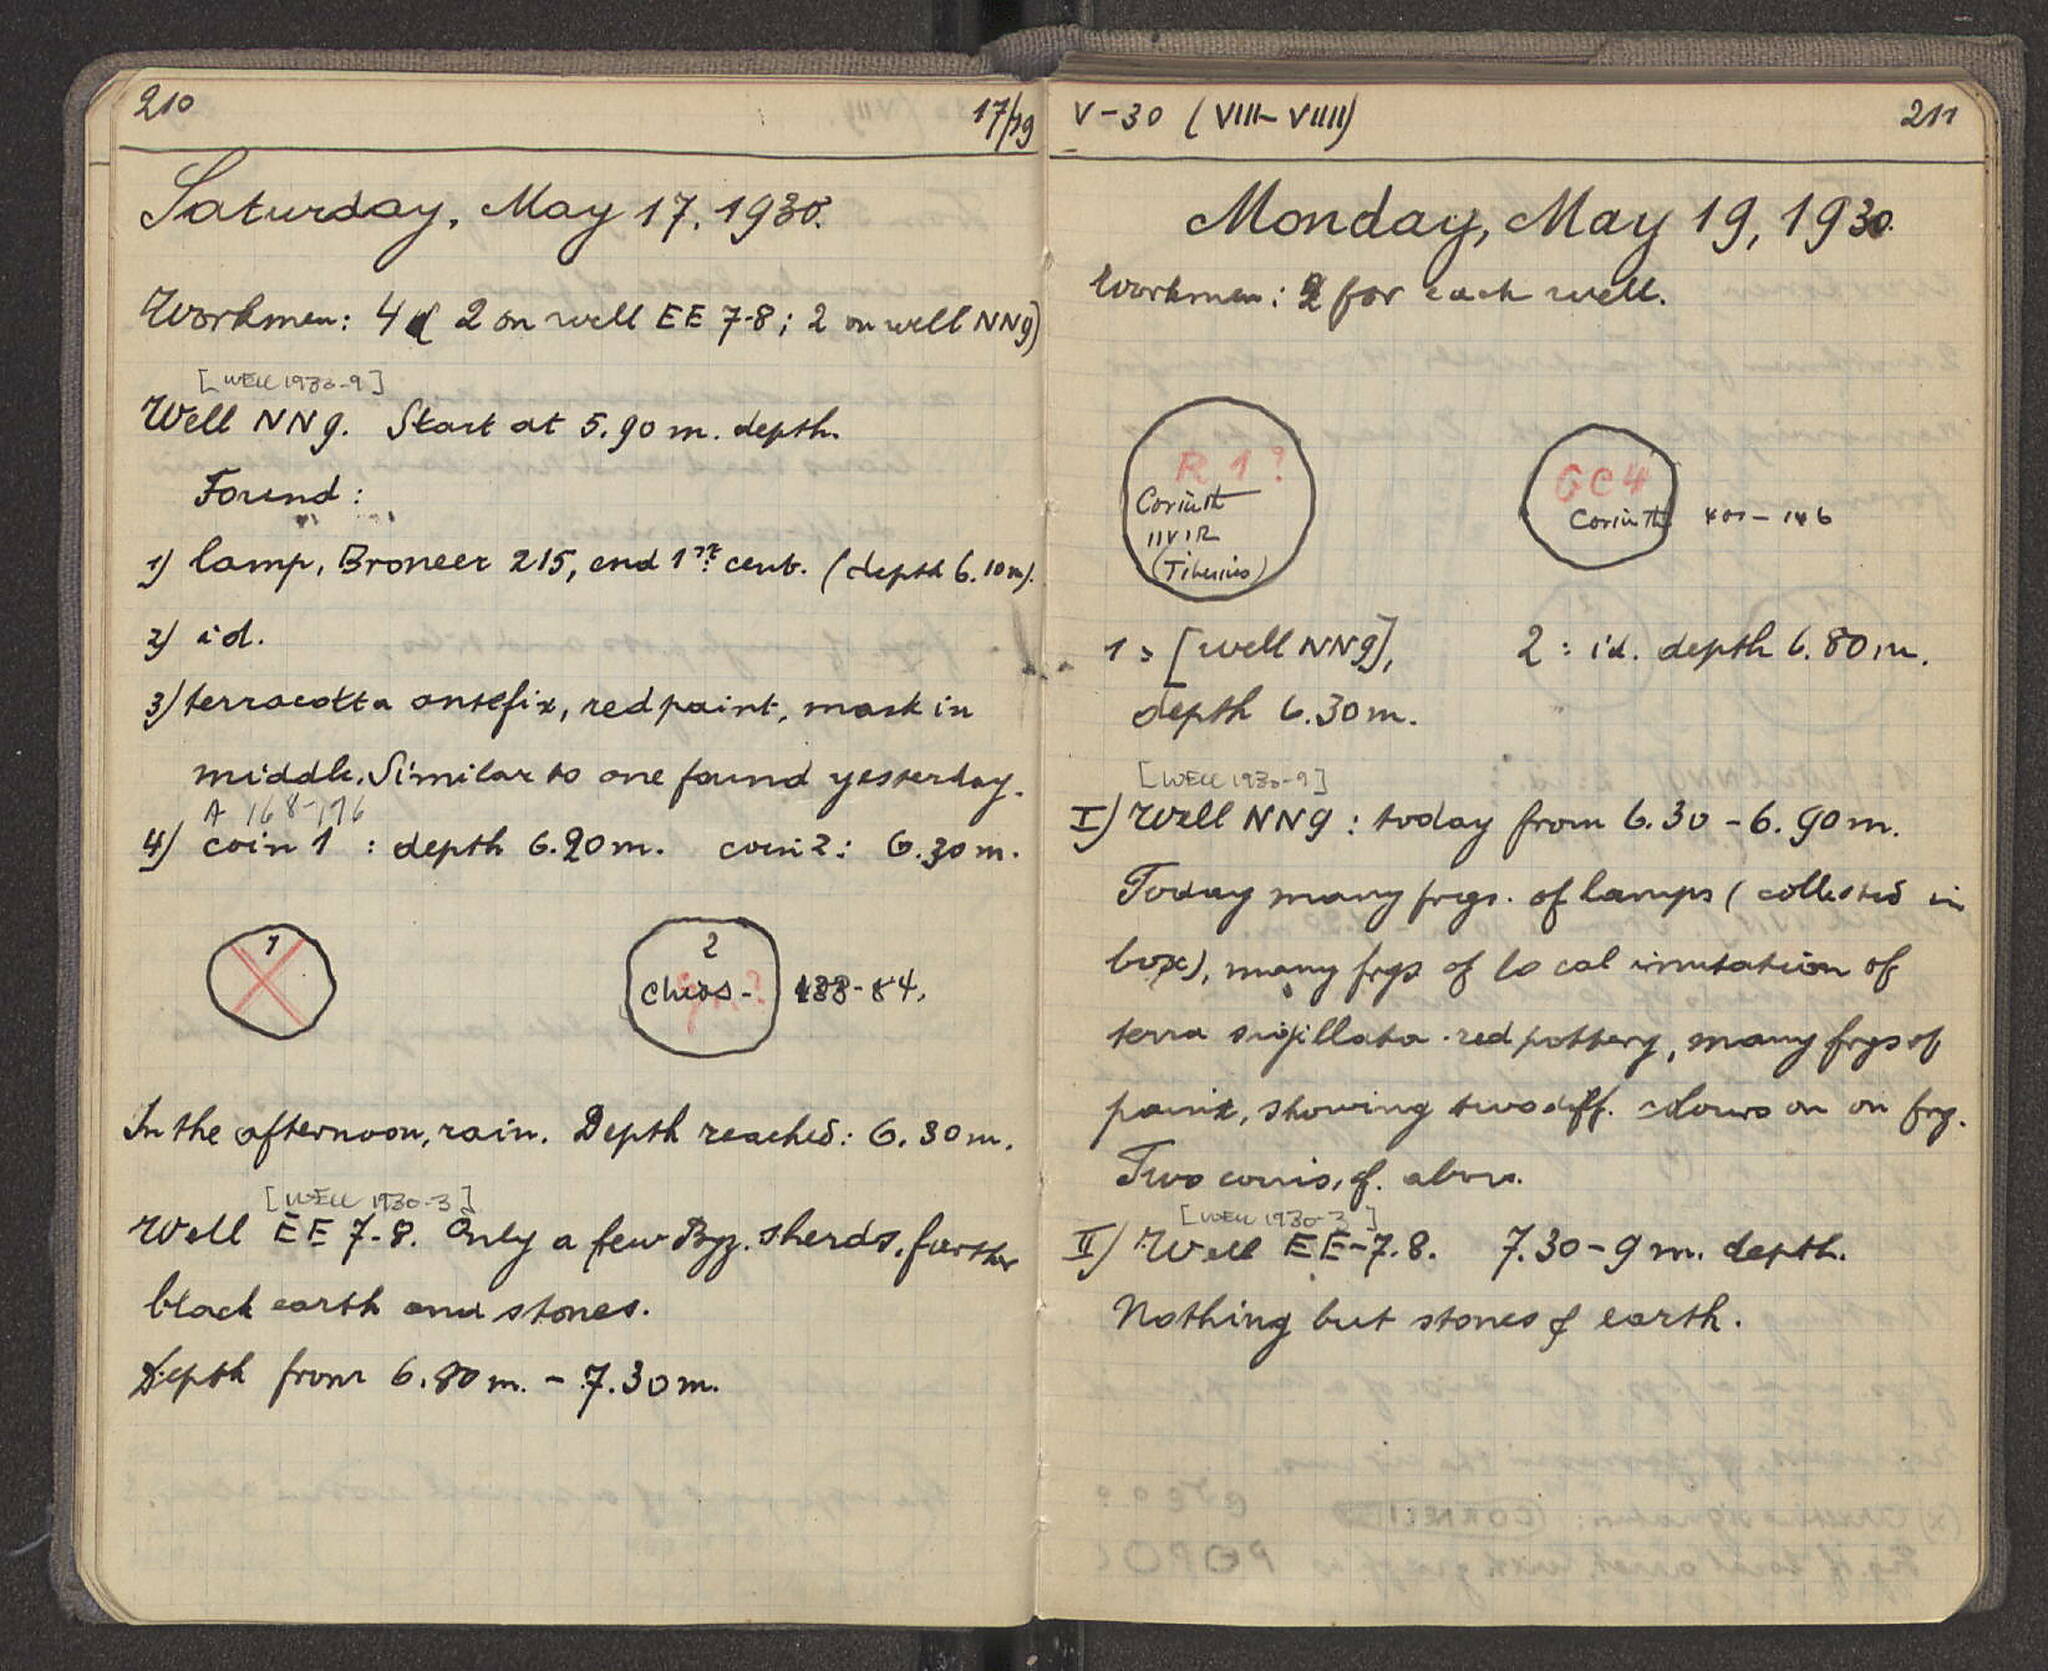 210
17/19
Saturday, May 17, 1930.
Workmen: 4 ( 2 on well EE 7-8; 2 on well NN9)
[WELL 1930-9]
Well NN9. Start at 5.90 m. depth.
Found:
1) lamp, Broneer 215, end 1st cent. (depth 6.10 m).
2) id.
3) terracotta antefix, red paint, mask in
middle. Similar to one found yesterday.
A 168-176
4) coin 1 : depth 6.20 m. coin 2: 6.30 m.
1
2
Chios - 133-84.
In the afternoon, rain. Depth reached: 6.30 m.
[WELL 1930-3]
Well EE 7-8. Only a few Byz. sherds, further
black earth and stones.
Depth from 6.80 m. - 7.30 m.
V-30 (VIII-VIIII)
211
Monday, May 19, 1930.
Workmen: 2 for each well.
R 1?
Corinth
IIVIR
(Tiberius)
GC4
Corinth 400-146
1: [well NN9],
depth 6.30 m.
2: id. depth 6.80 m.
[WELL 1930-9]
I) Well NN9: today from 6.30 - 6.90 m.
Today many frgs. of lamps (collected in
box), many frgs of local imitation of
terra sigillata red pottery, many frgs of
paint, showing two diff. colours on on frg.
Two coins, cf. above.
[WELL 1930-3]
II) Well EE-7.8. 7.30-9 m. depth.
Nothing but stones & earth.